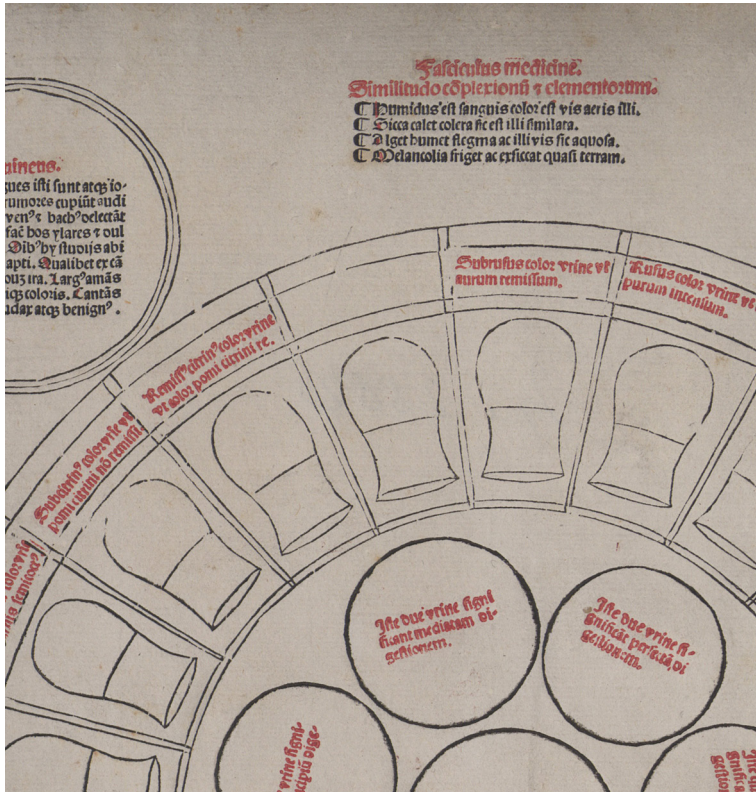 Fasciculus medicine.
Similitudo cōplexionū ⁊ elementorum.
¶ Humidus est sanguis color est vis aeris illi.
¶ Sicca calet colera sic est illi similata.
¶ Alget humet flegma ac illi vis sic aquosa.
¶ Melancolia friget ac exsiccat quasi terram.
gues isti sunt atqꝫ io-
rumores cupiūt audi
ven⁹ ⁊ bach⁹ delectāt
fac̄ hos ylares ⁊ dul
Dib⁹ hy studijs abi
apti. Qualibet ex cā
ouꝫ ira. Larg⁹ amās
iqꝫ coloris. Cantās
udax atqꝫ benign⁹.
Subrufus color vrine vt
aurum remissum.
Rufus color vrine vt
purum intensum.
Remiss⁹ citrin⁹ color vrine
vt color pomi citrini re.
Subcitrin⁹ color vrīe vt
pomi citrini nō remissi.
color vrīe
Iste due vrine signi
ficant mediatam di-
gestionem.
Iste due vrine si-
gnificāt perfectā di
gestionem.
vrine signi-
cipiū dige-